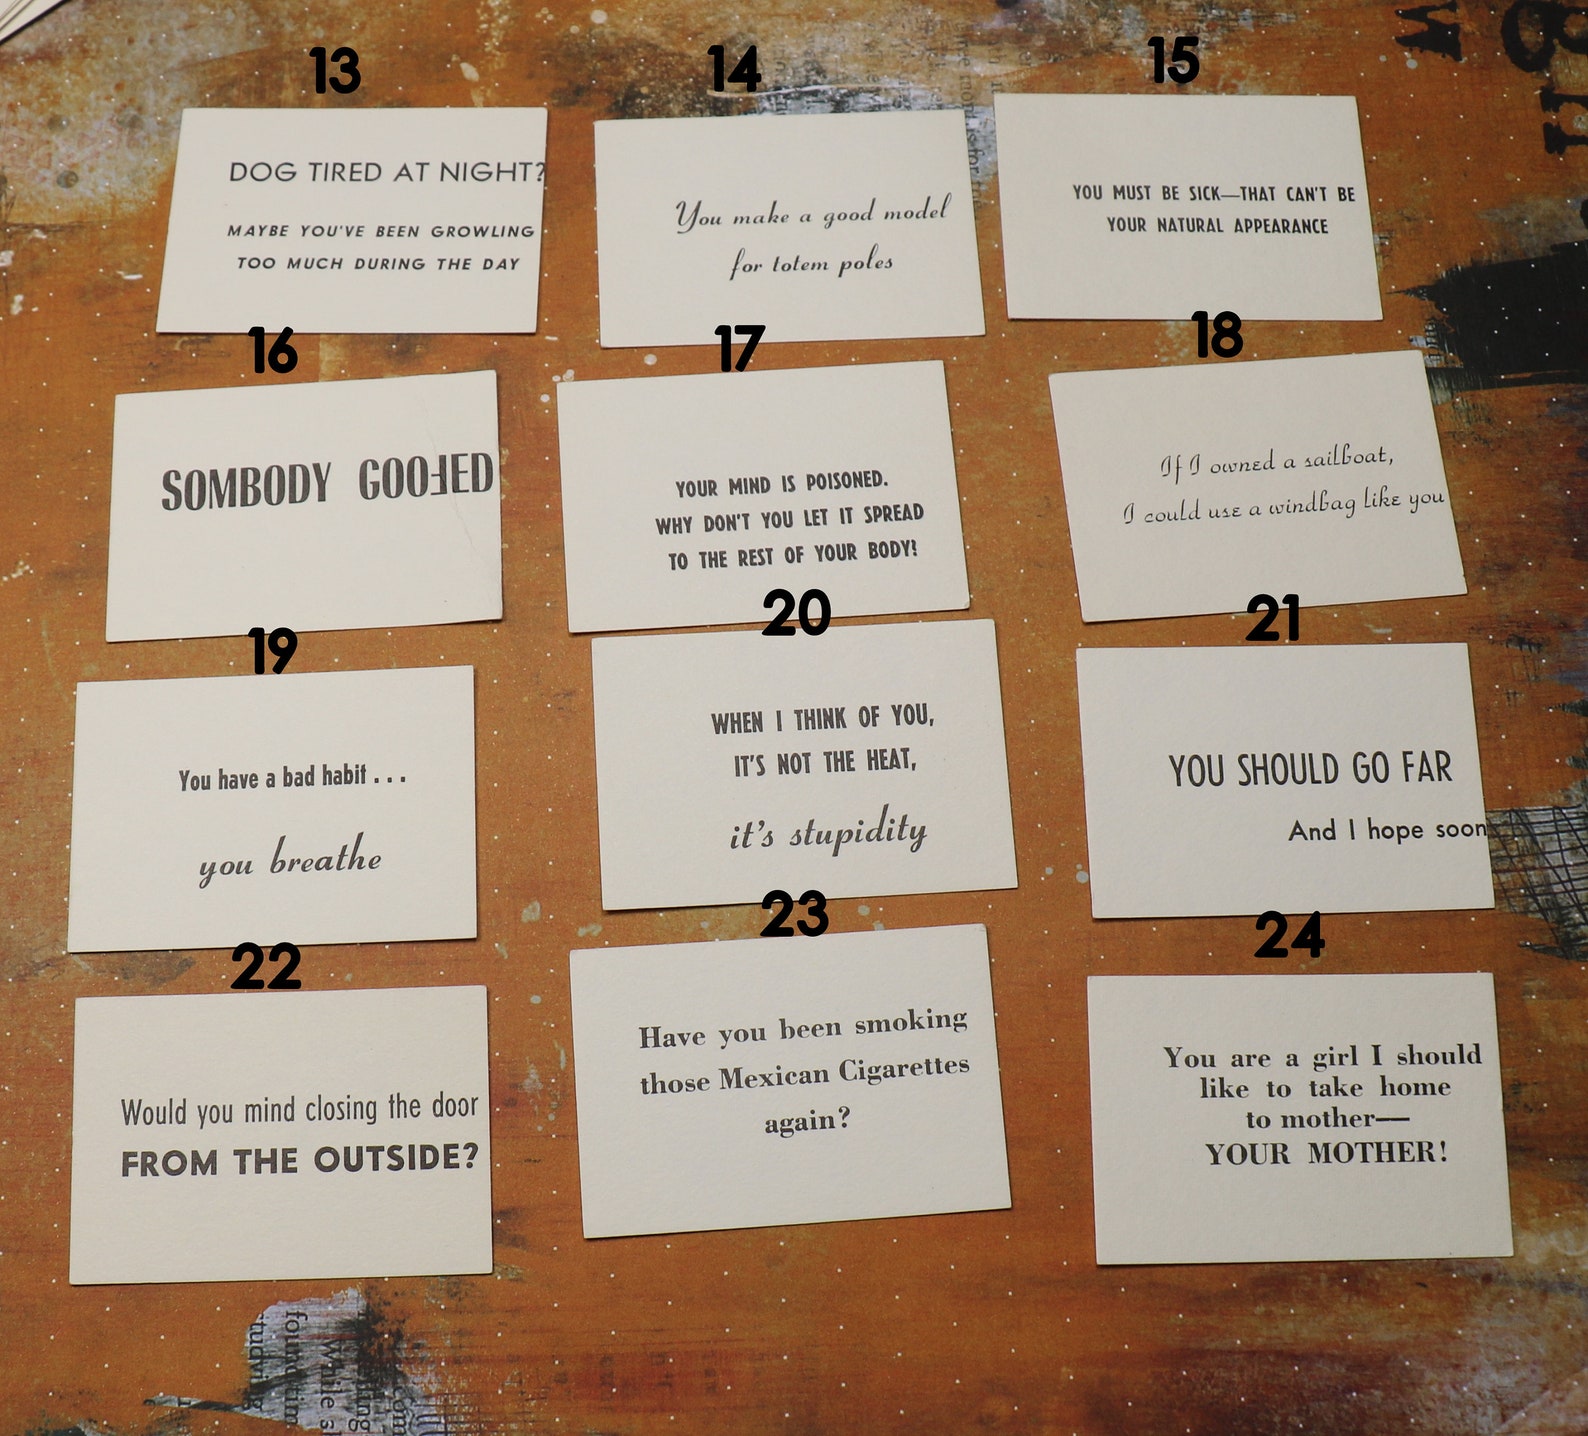 13
DOG TIRED AT NIGHT?
MAYBE YOU'VE BEEN GROWLING
TOO MUCH DURING THE DAY
14
You make a good model
for totem poles
15
YOU MUST BE SICK—THAT CAN'T BE
YOUR NATURAL APPEARANCE
16
SOMBODY GOOFED
17
YOUR MIND IS POISONED.
WHY DON'T YOU LET IT SPREAD
TO THE REST OF YOUR BODY?
18
If I owned a sailboat,
I could use a windbag like you
19
You have a bad habit . . .
you breathe
20
WHEN I THINK OF YOU,
IT'S NOT THE HEAT,
it's stupidity
21
YOU SHOULD GO FAR
And I hope soon
22
Would you mind closing the door
FROM THE OUTSIDE?
23
Have you been smoking
those Mexican Cigarettes
again?
24
You are a girl I should
like to take home
to mother—
YOUR MOTHER!